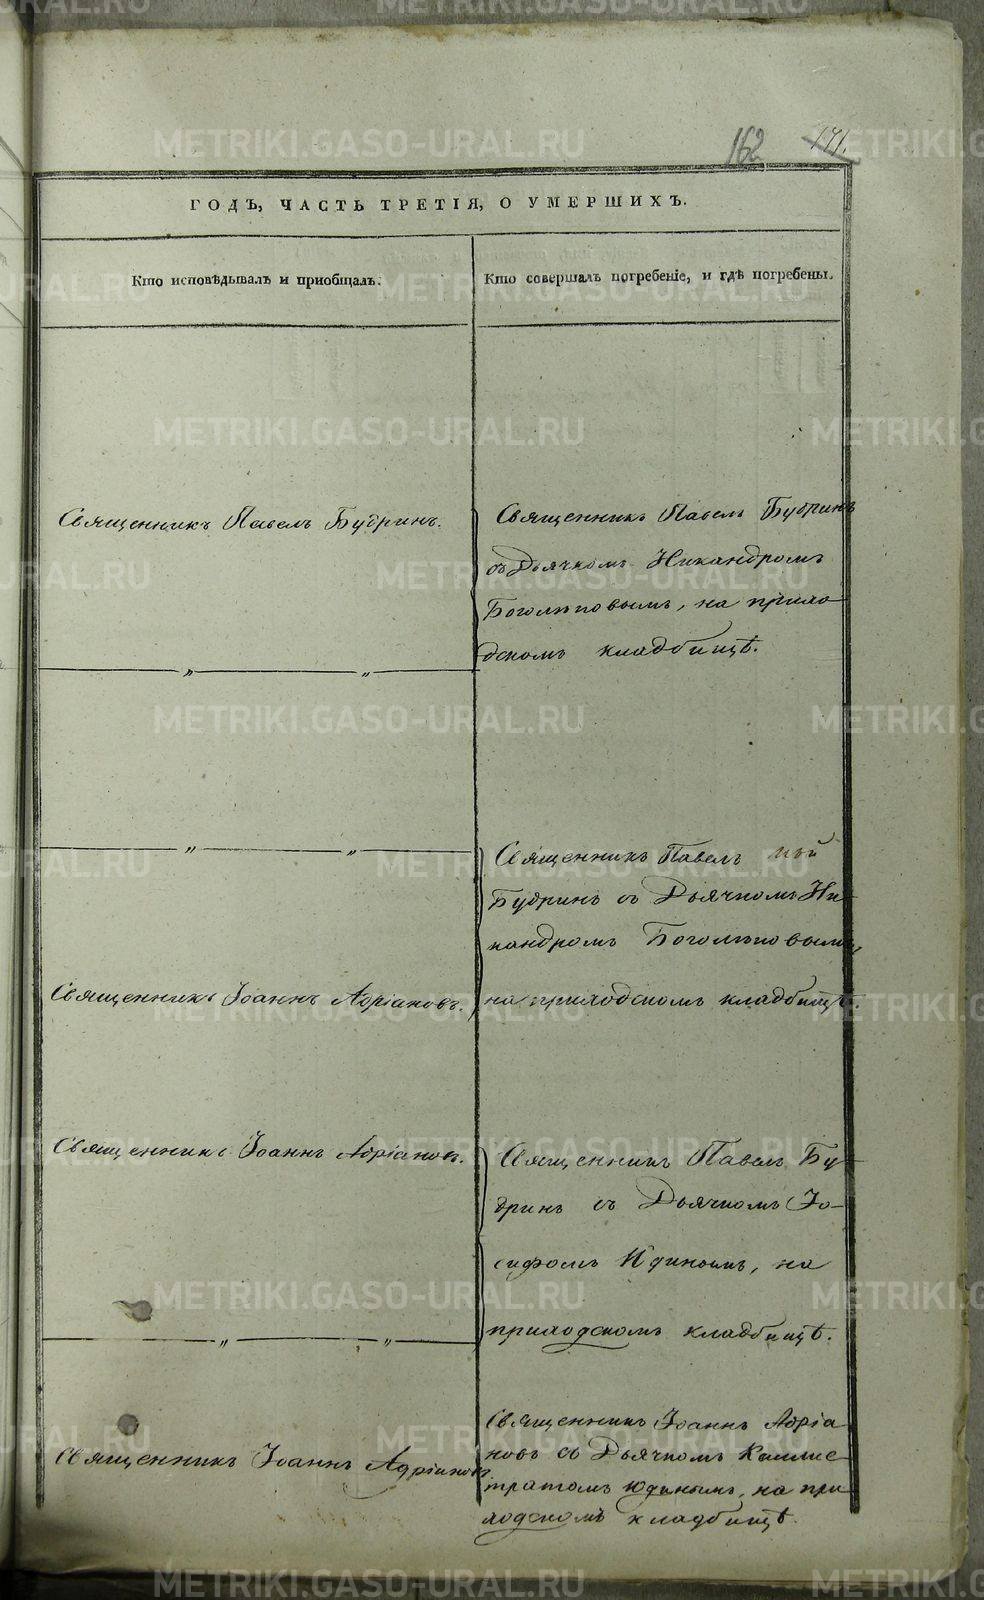 METRIKI.GASO-URAL.RU
162 171.
ГОДЪ, ЧАСТЬ ТРЕТІЯ, О УМЕРШИХЪ.
Кто исповѣдывалъ и пріобщалъ.
Кто совершалъ погребеніе, и гдѣ погребены.
Священникъ Павелъ Будринъ.
Священникъ Павелъ Будринъ
съ Дьячкомъ Никандромъ
Боголѣповымъ, на прихо-
дскомъ кладбищѣ.
Священникъ Павелъ
Будринъ съ Дьячкомъ Ни-
кандромъ Боголѣповымъ,
на приходскомъ кладбищѣ.
Священникъ Іоаннъ Адріановъ.
Священникъ Іоаннъ Адріановъ.
Священникъ Павелъ Бу-
дринъ съ Дьячкомъ Іо-
сифомъ Юдинымъ, на
приходскомъ кладбищѣ.
Священникъ Іоаннъ Адріановъ
Священникъ Іоаннъ Адріа
новъ съ Дьячкомъ Каллис
тратомъ Юдинымъ, на при
ходскомъ кладбищѣ.